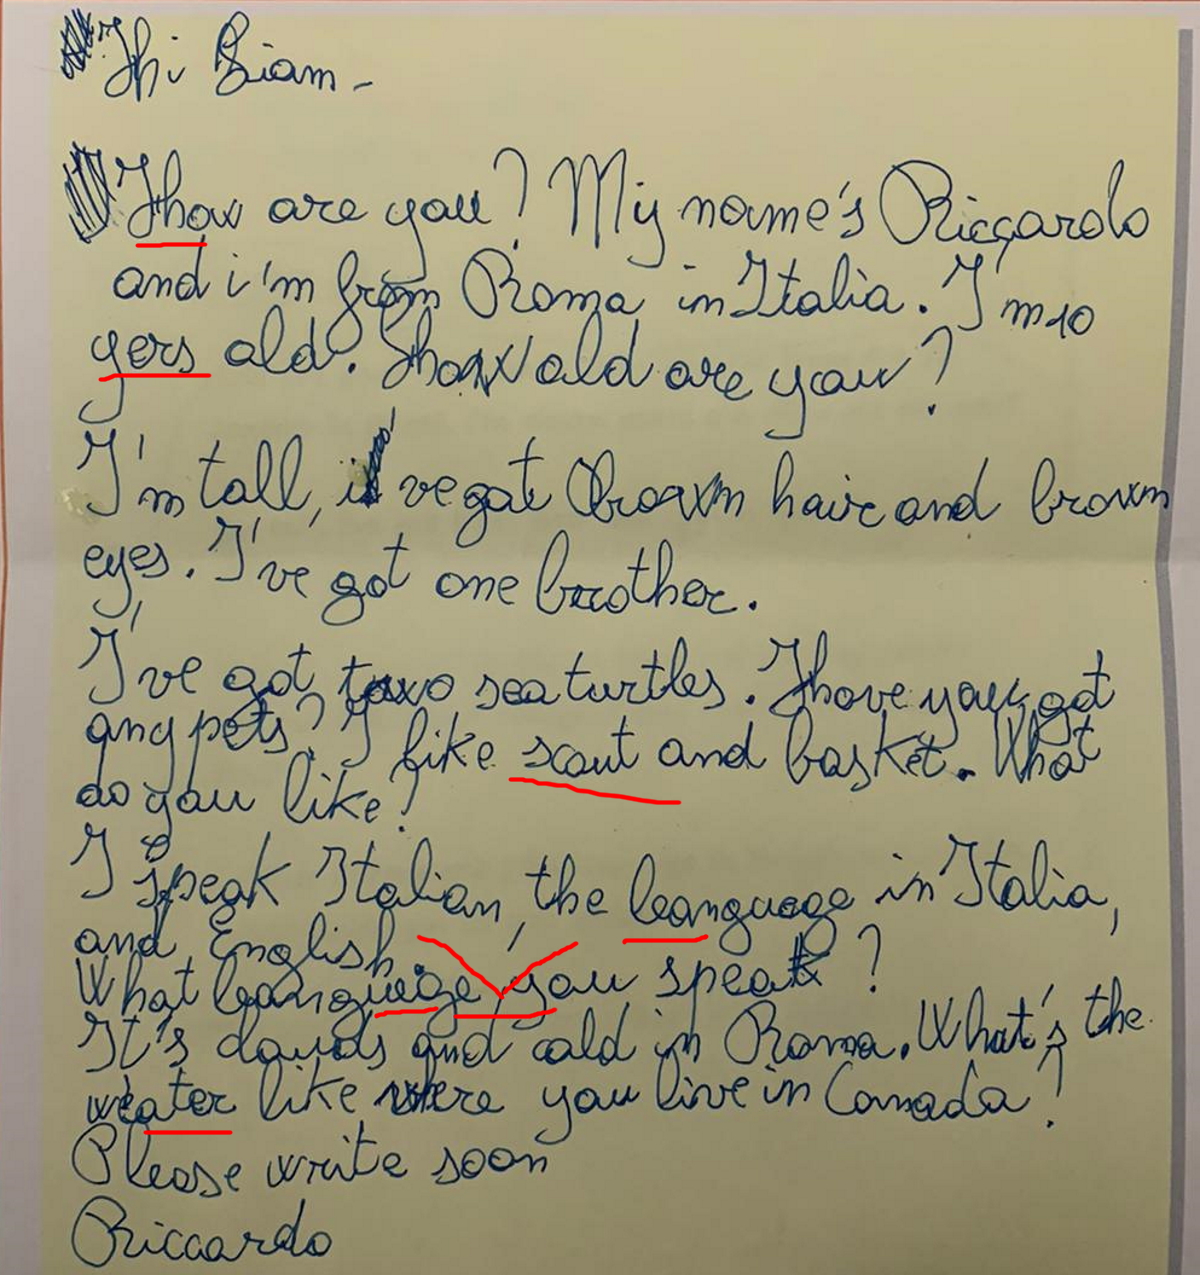 Hi Liam -
How are you? My name's Riccardo
and i'm from Roma in Italia. I'm 10
yers old. How old are you?
I'm tall, i've got brown hair and brown
eyes. I've got one brother.
I've got two sea turtles. Have you got
any pets? I like scout and basket. What
do you like?
I speak Italian, the leanguage in Italia,
and English.
What leanguage, you speak?
It's clouds and cold in Roma. What's the
weater like where you live in Canada?
Please write soon
Riccardo